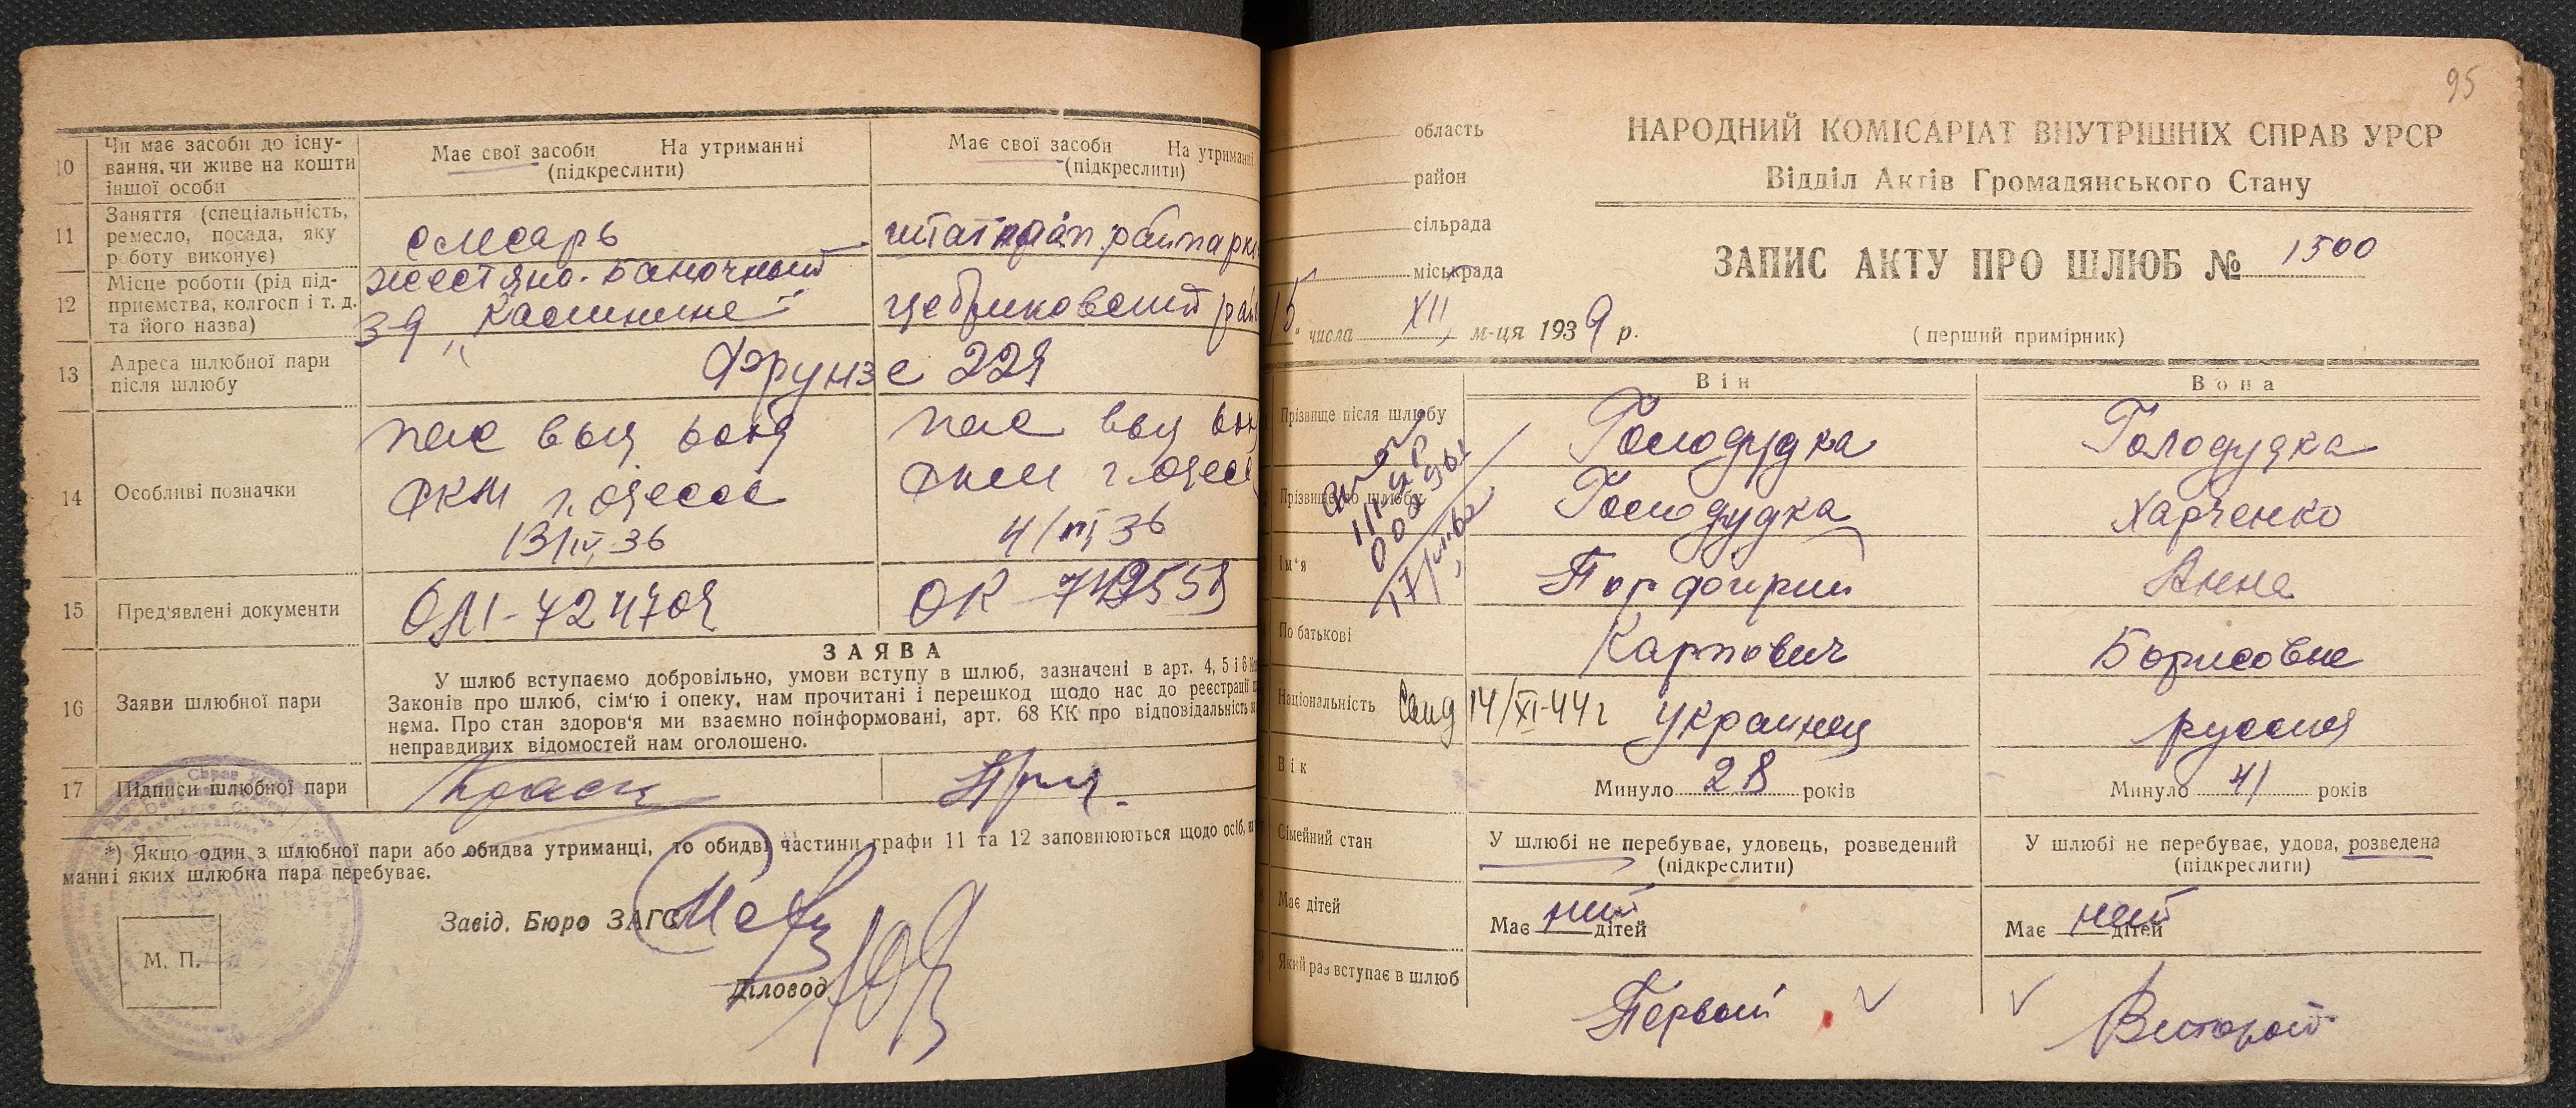 10
Чи має засоби до існу-
вання, чи живе на кошти
іншої особи
Має свої засоби На утриманні
(підкреслити)
Має свої засоби На утриманні
(підкреслити)
11
Заняття (спеціальність,
ремесло, посада, яку
роботу виконує)
слесарь
12
Місце роботи (рід під-
приємства, колгосп і т. д.
та його назва)
жестяно-баночный
з-д Калинина
Цебриковский рай
13
Адреса шлюбної пари
після шлюбу
Фрунзе 229
14
Особливі позначки
пас выд
РКМ г. Одесса
13/IV 36
пас выд
РКМ г. Одесса
4/III 36
15
Пред'явлені документи
ОК 749559
16
Заяви шлюбної пари
ЗАЯВА
У шлюб вступаємо добровільно, умови вступу в шлюб, зазначені в арт. 4, 5 і 6
Законів про шлюб, сім'ю і опеку, нам прочитані і перешкод щодо нас до реєстрації
нема. Про стан здоров'я ми взаємно поінформовані, арт. 68 КК про відповідальність за
неправдивих відомостей нам оголошено.
17
Підписи шлюбної пари
*) Якщо один з шлюбної пари або обидва утриманці, то обидві частини графи 11 та 12 заповнюються щодо осіб, на
манні яких шлюбна пара перебуває.
Завід. Бюро ЗАГС
Діловод
М. П.
95
область
район
сільрада
міськрада
НАРОДНИЙ КОМІСАРІАТ ВНУТРІШНІХ СПРАВ УРСР
Відділ Актів Громадянського Стану
ЗАПИС АКТУ ПРО ШЛЮБ № 1500
15 " числа XII м-ця 1939 р.
(перший примірник)
Він
Вона
Прізвище після шлюбу
Голодудка
Голодудка
Прізвище до шлюбу
Голодудка
Харченко
Ім'я
Порфирий
Анна
По батькові
Карпович
Борисовна
Національність
14/XI-44 г
украинец
русская
Вік
Минуло 28 років
Минуло 41 років
Сімейний стан
У шлюбі не перебуває, удовець, розведений
(підкреслити)
У шлюбі не перебуває, удова, розведена
(підкреслити)
Має дітей
Має нет дітей
Має нет дітей
Який раз вступає в шлюб
Первый
Второй